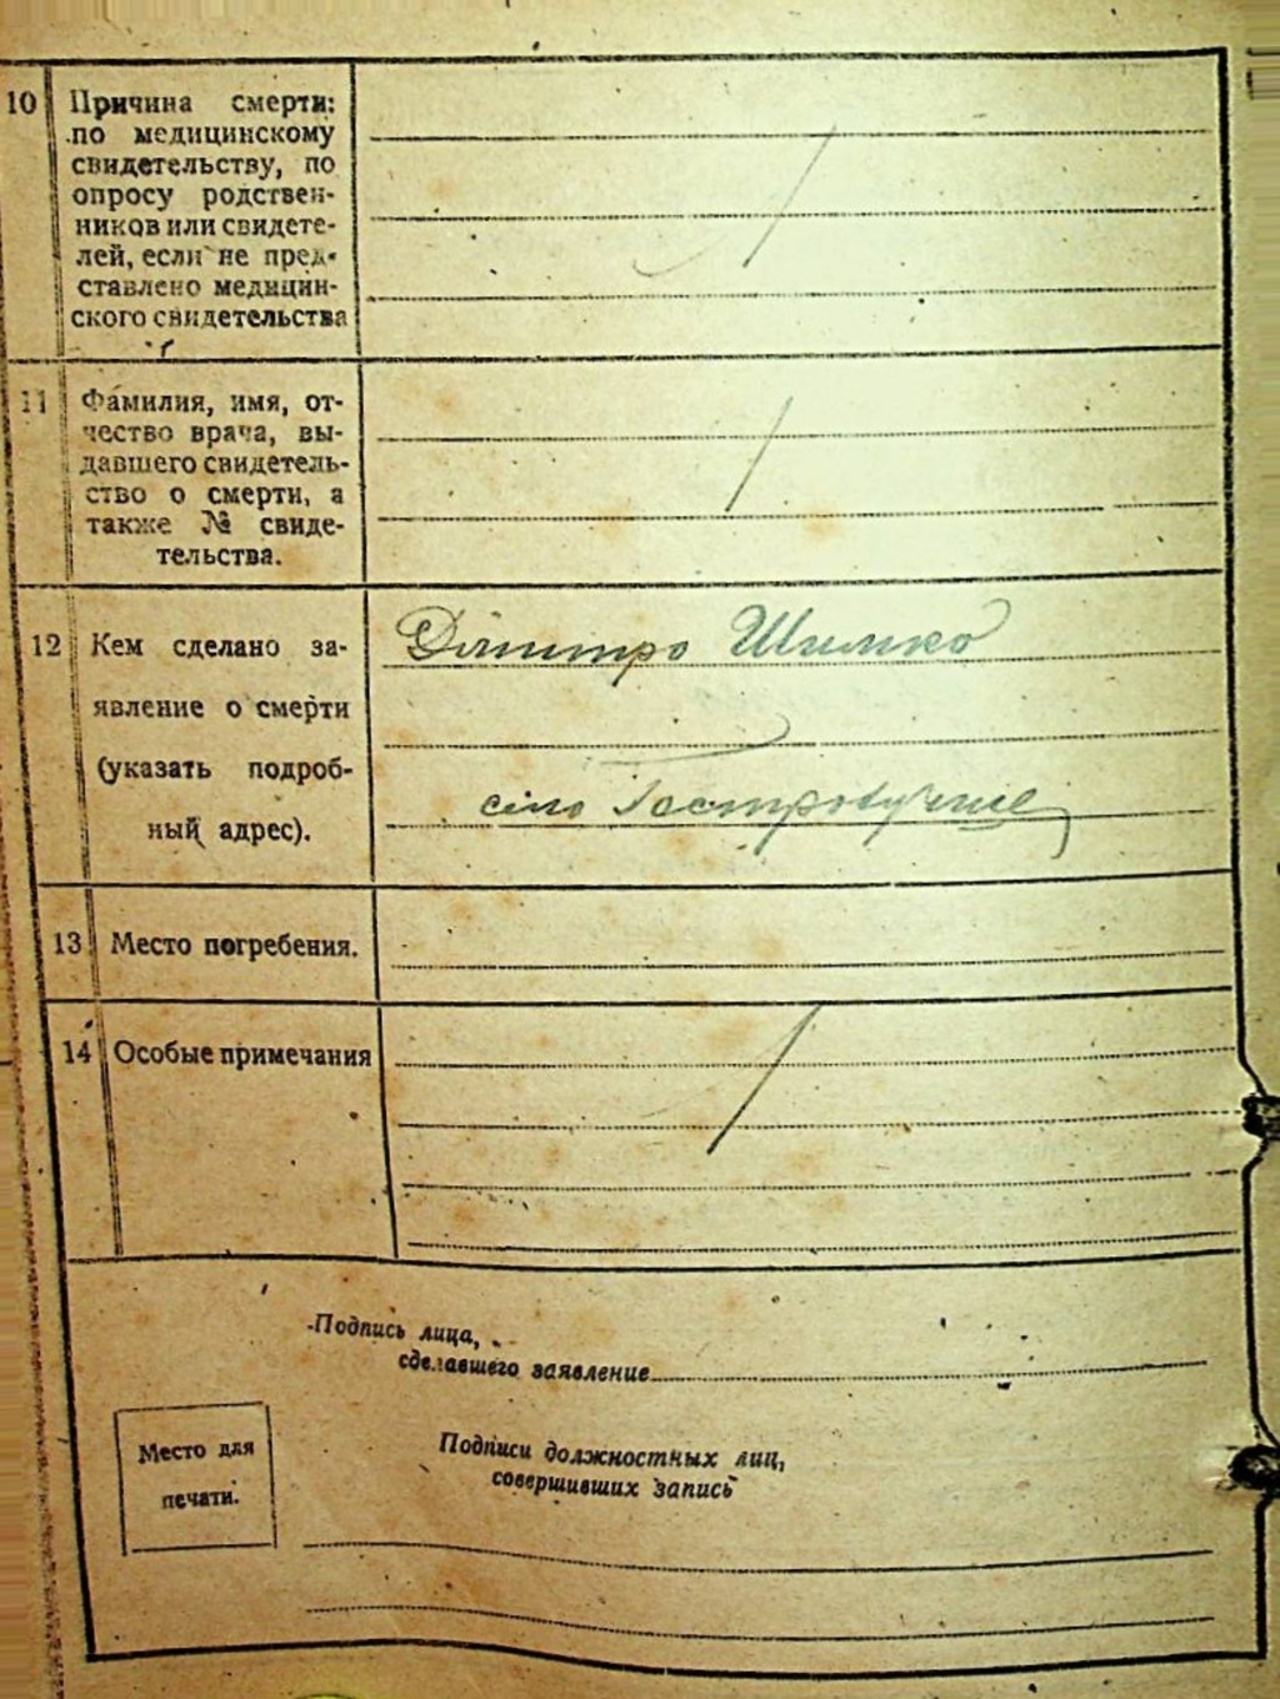 10 Причина смерти:
по медицинскому
свидетельству, по
опросу родствен-
ников или свидете-
лей, если не пред-
ставлено медицин-
ского свидетельства
11 Фамилия, имя, от-
чество врача, вы-
давшего свидетель-
ство о смерти, а
также № свиде-
тельства.
12 Кем сделано за-
явление о смерти
(указать подроб-
ный адрес).
Дмитро Шимко
село
13 Место погребения.
14 Особые примечания
Подпись лица,
сделавшего заявление
Место для
печати.
Подписи должностных лиц,
совершивших запись